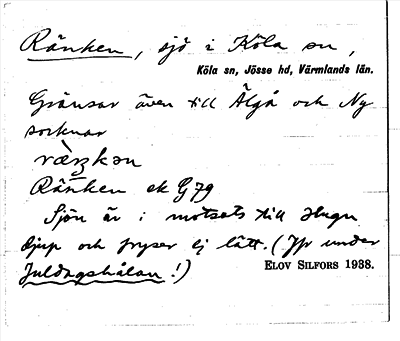 Ränken, sjö i Köla sn,
Köla sn, Jösse hd, Värmlands län.
Gränsar även till Älgå och Ny
socknar
Ränken ek G79
Sjön är i motsats till Hugn
djup och fryser ej lätt. (Jfr under
Juldagshålan!)
ELOV SILFORS 1938.